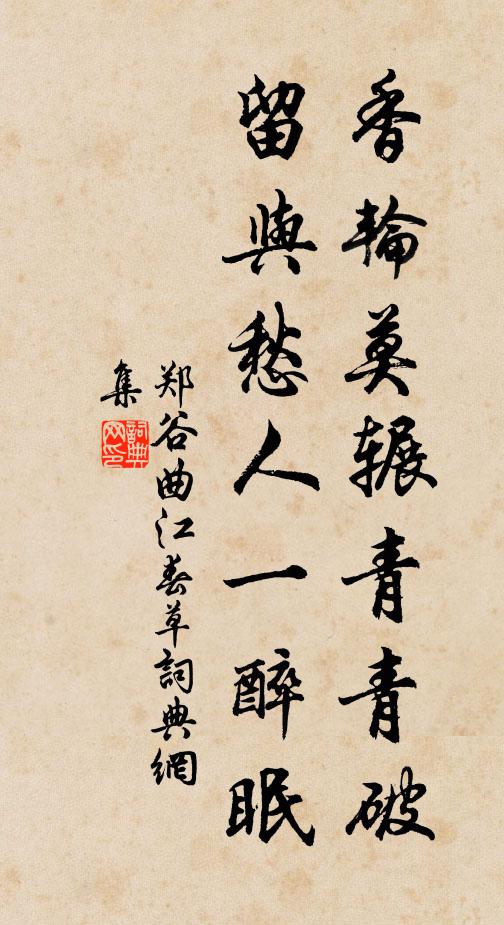 香輪莫辗青青破
留與愁人一醉眠
郑谷曲江春草詞典網
集
詞典
网印